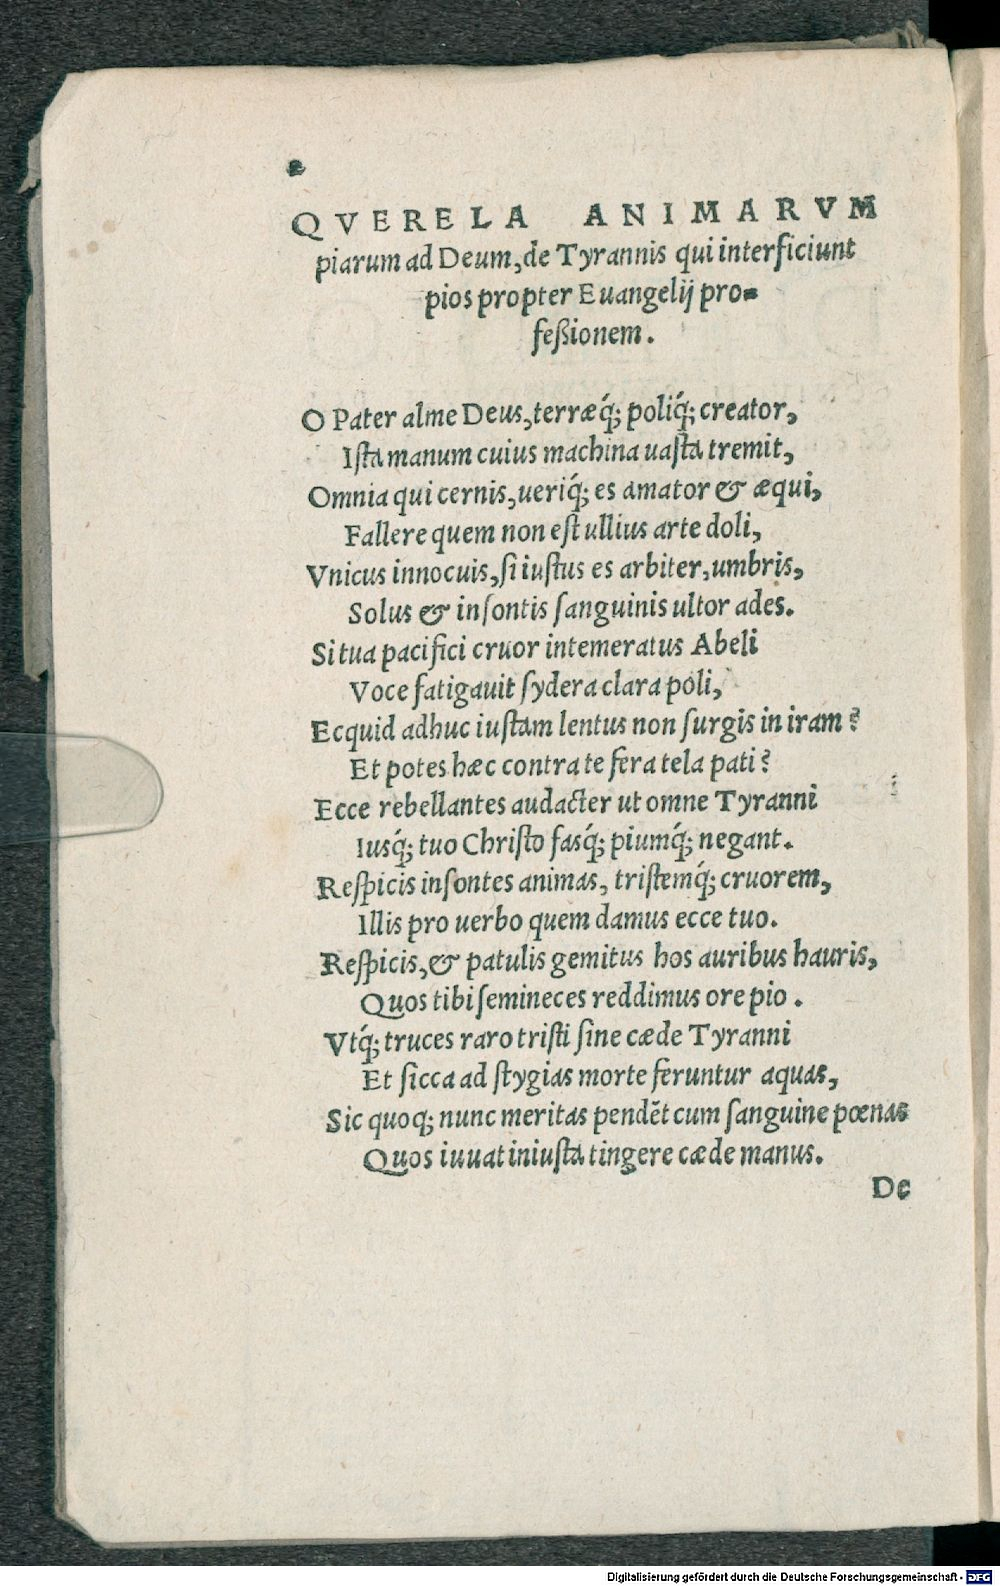 QVERELA ANIMARVM
piarum ad Deum, de Tyrannis qui interficiunt
pios propter Euangelij pro=
feßionem.
O Pater alme Deus, terræq́; poliq́; creator,
Ista manum cuius machina uasta tremit,
Omnia qui cernis, ueriq́; es amator & æqui,
Fallere quem non est ullius arte doli,
Vnicus innocuis, si iustus es arbiter, umbris,
Solus & insontis sanguinis ultor ades.
Si tua pacifici cruor intemeratus Abeli
Voce fatigauit sydera clara poli,
Ecquid adhuc iustam lentus non surgis in iram?
Et potes hæc contra te fera tela pati?
Ecce rebellantes audacter ut omne Tyranni
Iusq́; tuo Christo fasq́; piumq́; negant.
Respicis insontes animas, tristemq́; cruorem,
Illis pro uerbo quem damus ecce tuo.
Respicis, & patulis gemitus hos auribus hauris,
Quos tibi semineces reddimus ore pio.
Vtq́; truces raro tristi sine cæde Tyranni
Et sicca ad stygias morte feruntur aquas,
Sic quoq; nunc meritas pendẽt cum sanguine pœnas
Quos iuuat iniusta tingere cæde manus.
De
Digitalisierung gefördert durch die Deutsche Forschungsgemeinschaft - DFG